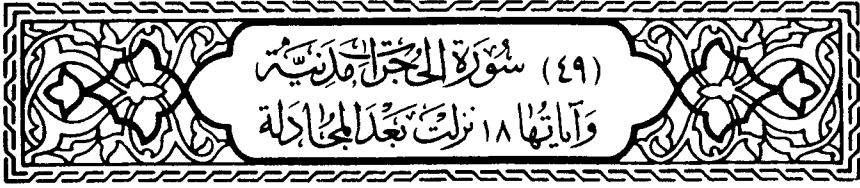 (٤٩) سُورَة الحُجرَات مَدَنيَّة
وَآيَاتُهَا ١٨ نزلَت بَعْدَ المجَادلة